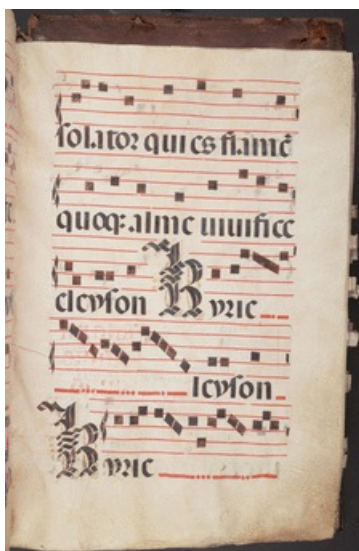 solator qui es flamē
quoq: alme uiuifice
eleyson Kyrie
leyson
Kyrie